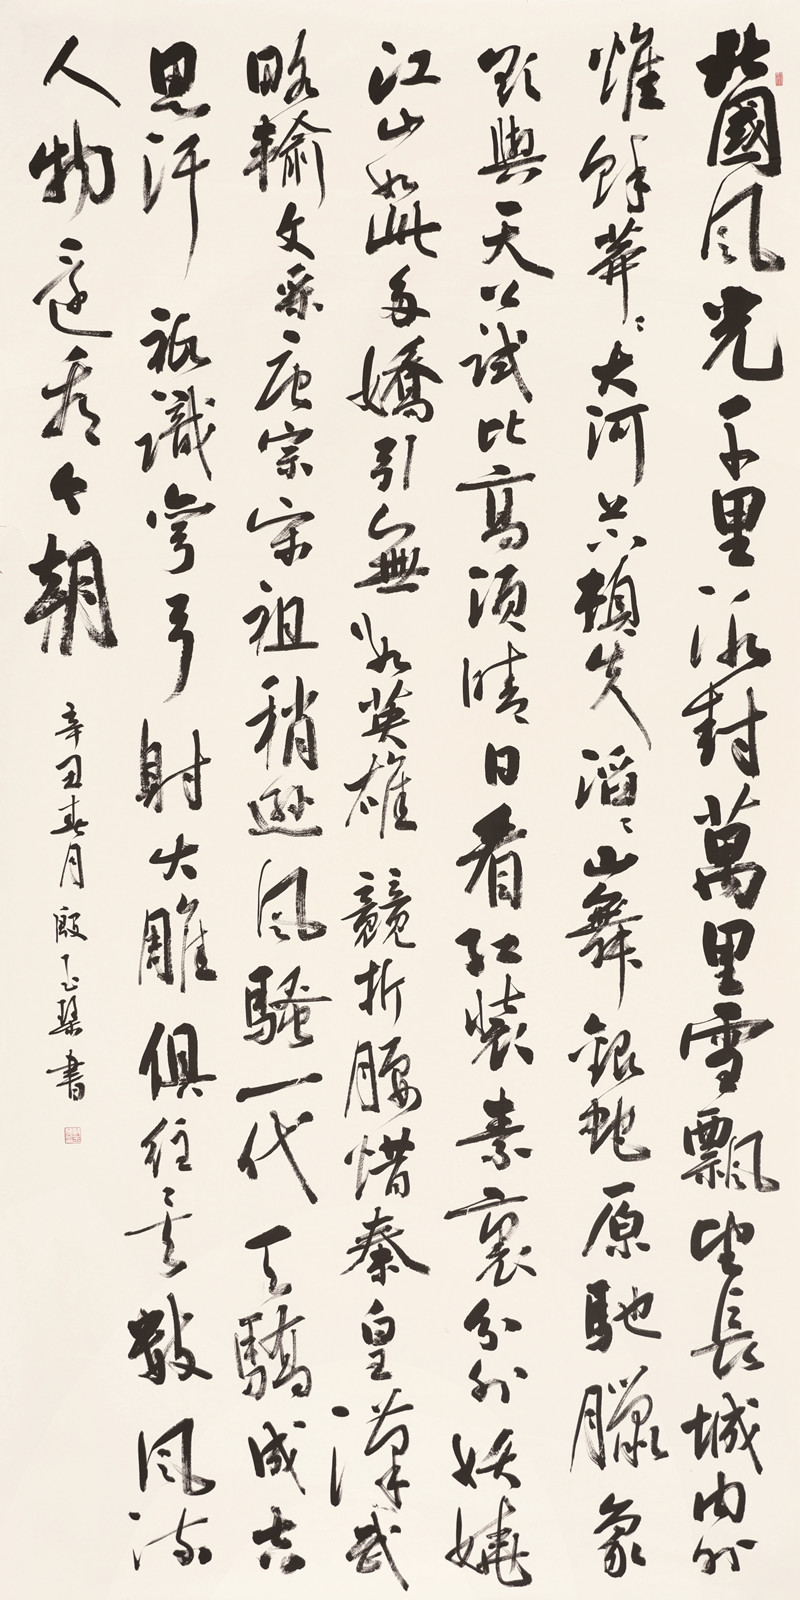 北國風光千里冰封萬里雪飄望長城內外
惟餘莽〻大河上下頓失滔〻山舞銀蛇原馳臘象
欲與天公試比高須晴日看紅裝素裹分外妖嬈
江山如此多嬌引無數英雄競折腰惜秦皇漢武
略輸文采唐宗宋祖稍遜風騷一代天驕成吉
思汗祗識彎弓射大雕俱往矣數風流
人物還看今朝
辛丑春月殷玉琴書